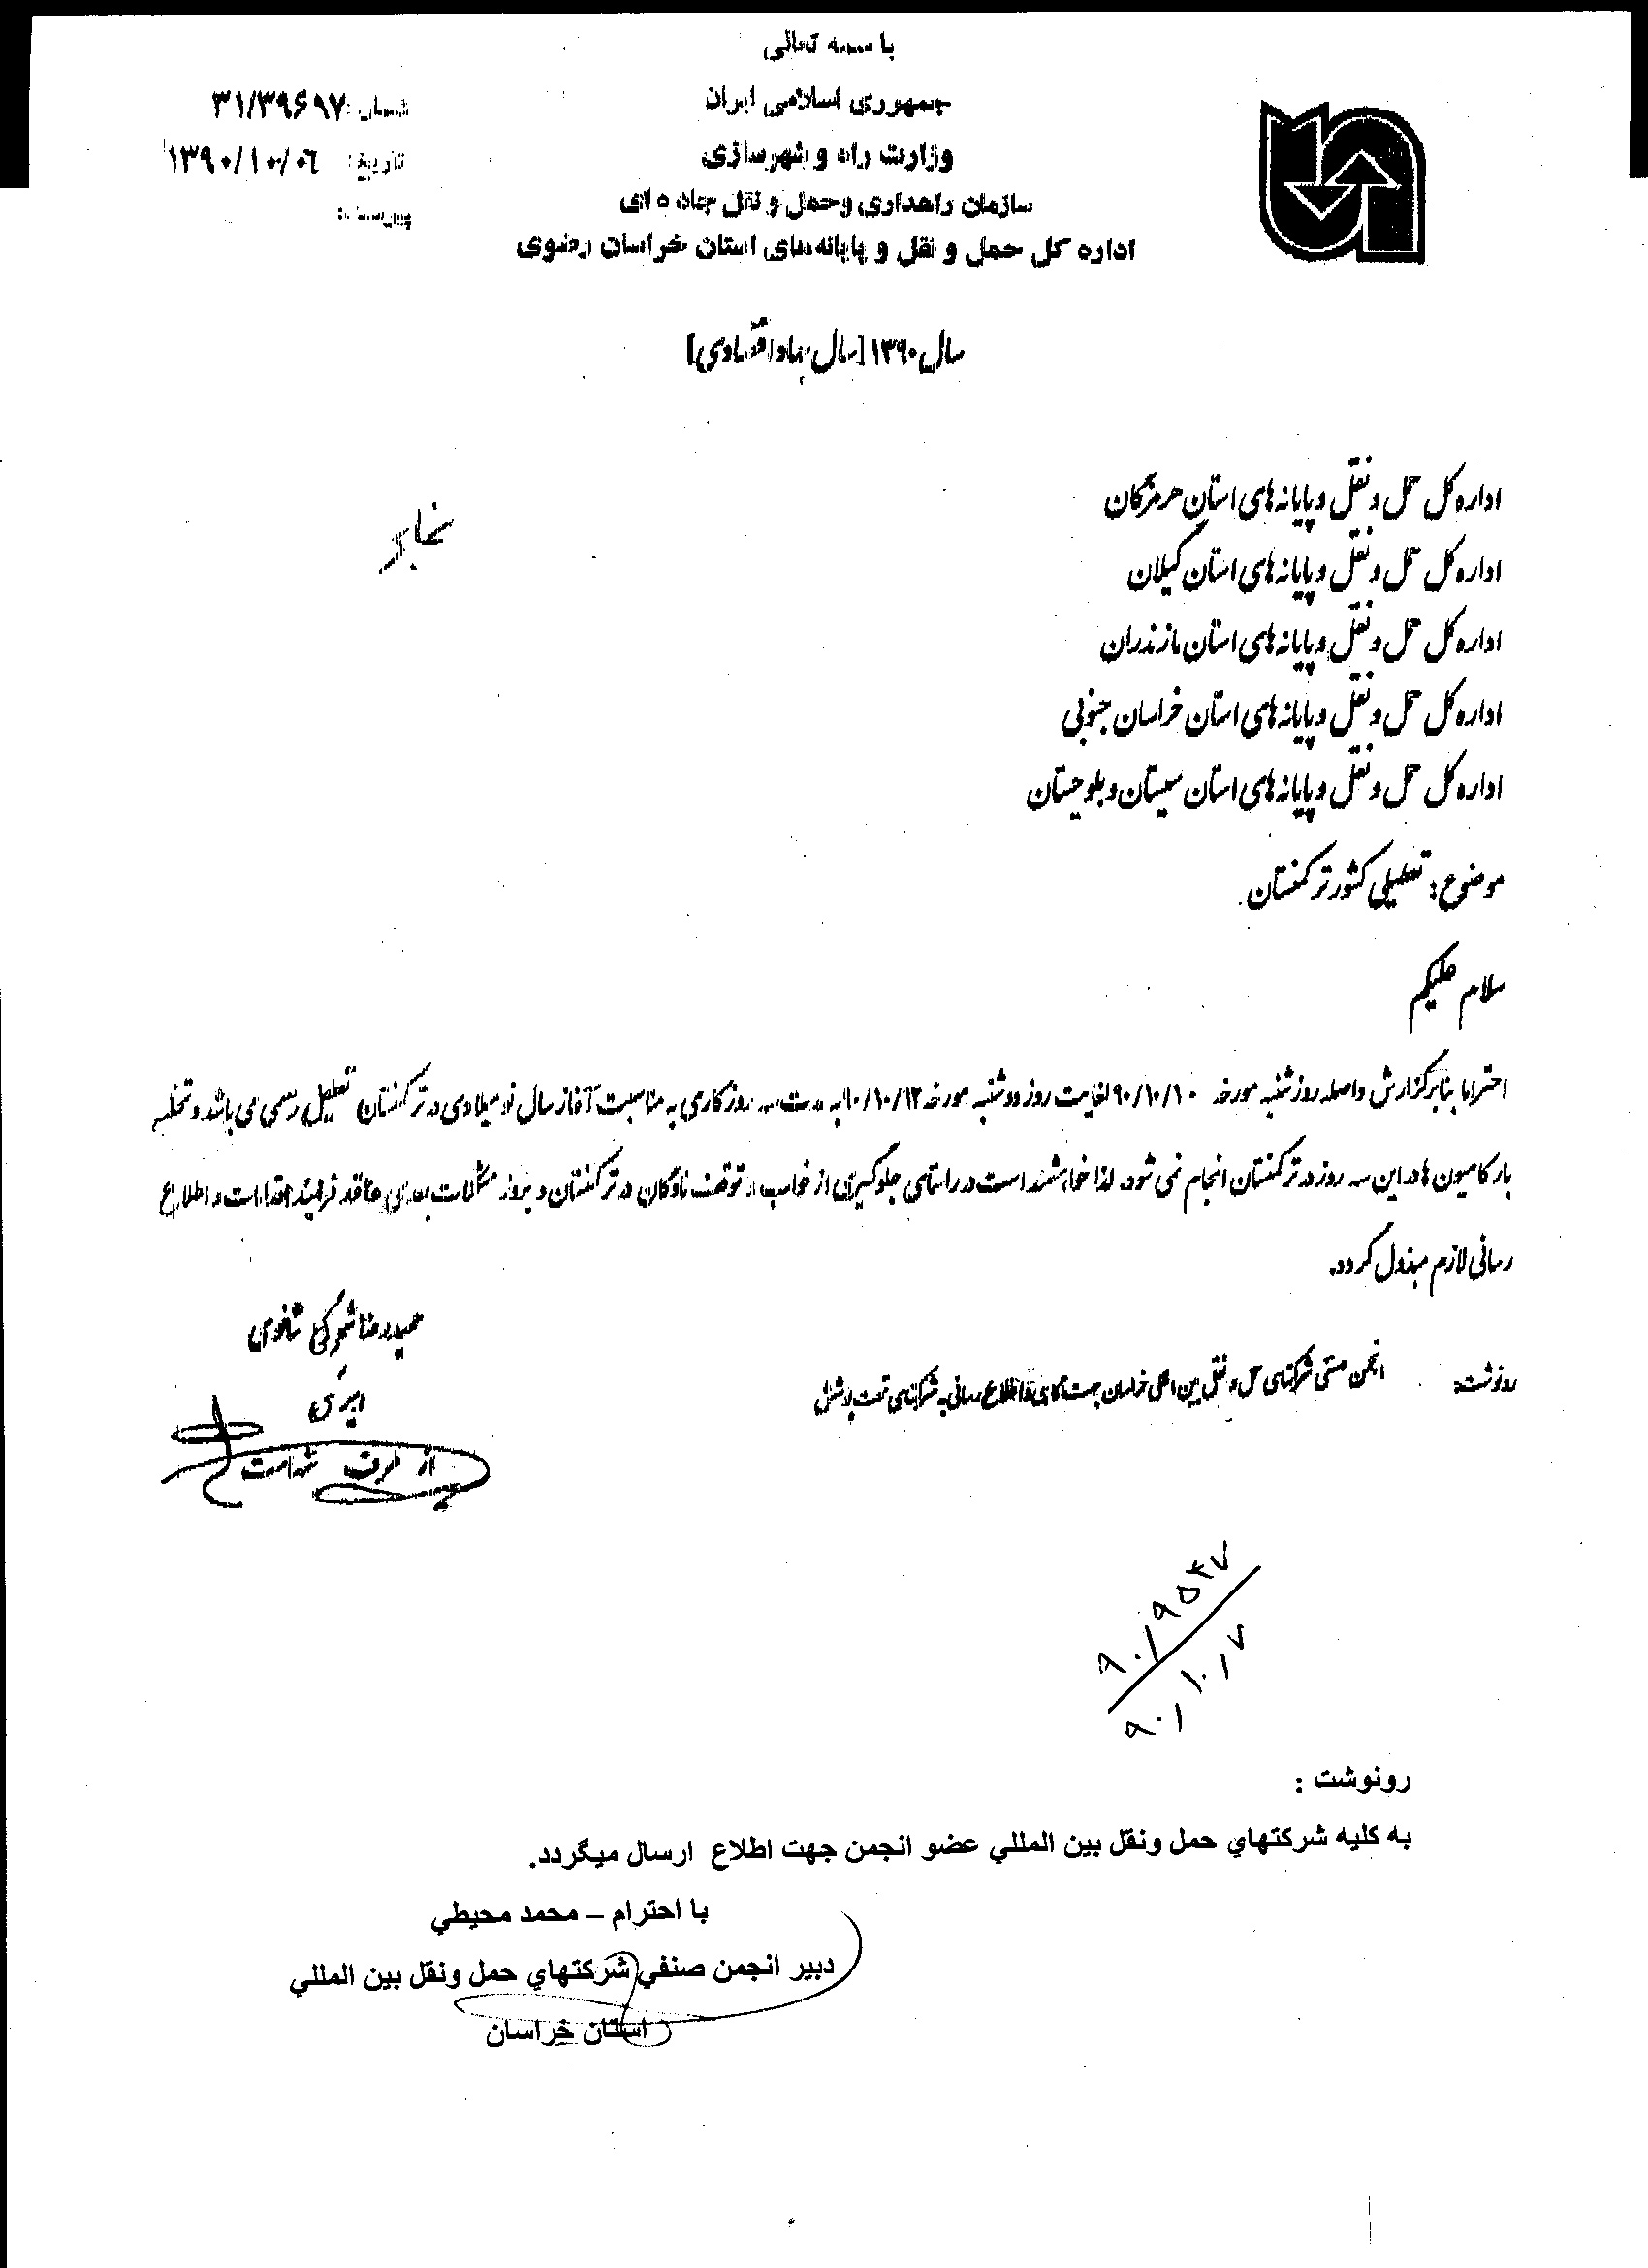 با سمه تعالی
جمهوری اسلامی ایران
وزارت راه و شهرسازی
سازمان راهداری وحمل و نقل جاده ای
اداره کل حمل و نقل و پایانه‌های استان خراسان رضوی
شماره: ۳۱/۳۹۶۹۷
تاریخ: ۱۳۹۰/۱۰/۰۶
پیوست:
سال ۱۳۹۰ [سال جهاد اقتصادی]
اداره کل حمل و نقل و پایانه های استان هرمزگان
اداره کل حمل و نقل و پایانه های استان گیلان
اداره کل حمل و نقل و پایانه های استان مازندران
اداره کل حمل و نقل و پایانه های استان خراسان جنوبی
اداره کل حمل و نقل و پایانه های استان سیستان و بلوچستان
موضوع: تعطیلی کشور ترکمنستان
سلام علیکم
احتراما بنابر گزارش واصله روز شنبه مورخه ۹۰/۱۰/۱۰ لغایت روز دوشنبه مورخه ۱۰/۱۰/۱۲ به مدت سه روز کاری به مناسبت آغاز سال نو میلادی در ترکمنستان تعطیل رسمی می باشد و تخلیه
بار کامیون ها در این سه روز در ترکمنستان انجام نمی شود. لذا خواهشمند است در راستای جلوگیری از خواب و توقف ناوگان در ترکمنستان و بروز مشکلات بعدی اقدامات و اطلاع
رسانی لازم مبذول گردد.
حمیدرضا شهرکی ثانوی
از طرف
رونوشت:
انجمن صنفی شرکتهای حمل و نقل بین المللی خراسان جهت آگاهی و اطلاع رسانی به شرکتهای تحت پوشش
۹۰/۹۵۴۷
۹۰/۱۰/۷
رونوشت :
به کلیه شرکتهاي حمل ونقل بین المللي عضو انجمن جهت اطلاع ارسال میگردد.
با احترام – محمد محیطي
دبیر انجمن صنفي شرکتهاي حمل ونقل بین المللي
استان خراسان